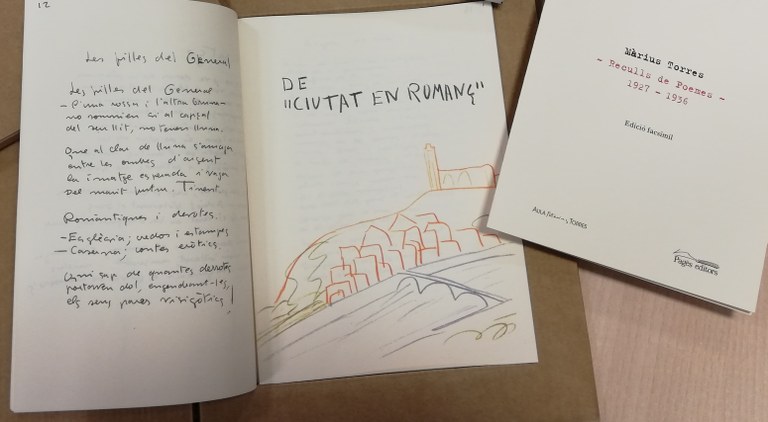 12
Les filles del General
Les filles del General
– l'una rossa i l'altra bruna –
no somnien ací al capçal
del seu llit, no tenen lluna.
Que al clar de lluna s'amaga
entre les ombres d'argent
la imatge esperada i vaga
del marit futur. Tinent.
Romàntiques i devotes.
– Església; credos i estampes
– Caserna; contes eròtics.
Qui sap de quantes derrotes
portaren dol, engendrant-les,
els seus pares visigòtics!
DE
"CIUTAT EN ROMANÇ"
Màrius Torres
– Reculls de Poemes –
1927 – 1936
Edició facsímil
AULA MÀRIUS TORRES
Pagès editors